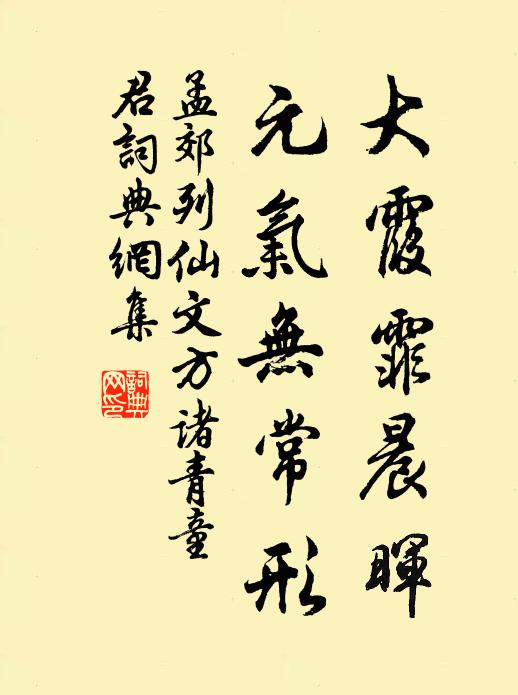 大霞霏晨暉
元氣無常形
孟郊列仙文方諸青童
君詞典網集
詞典
网印